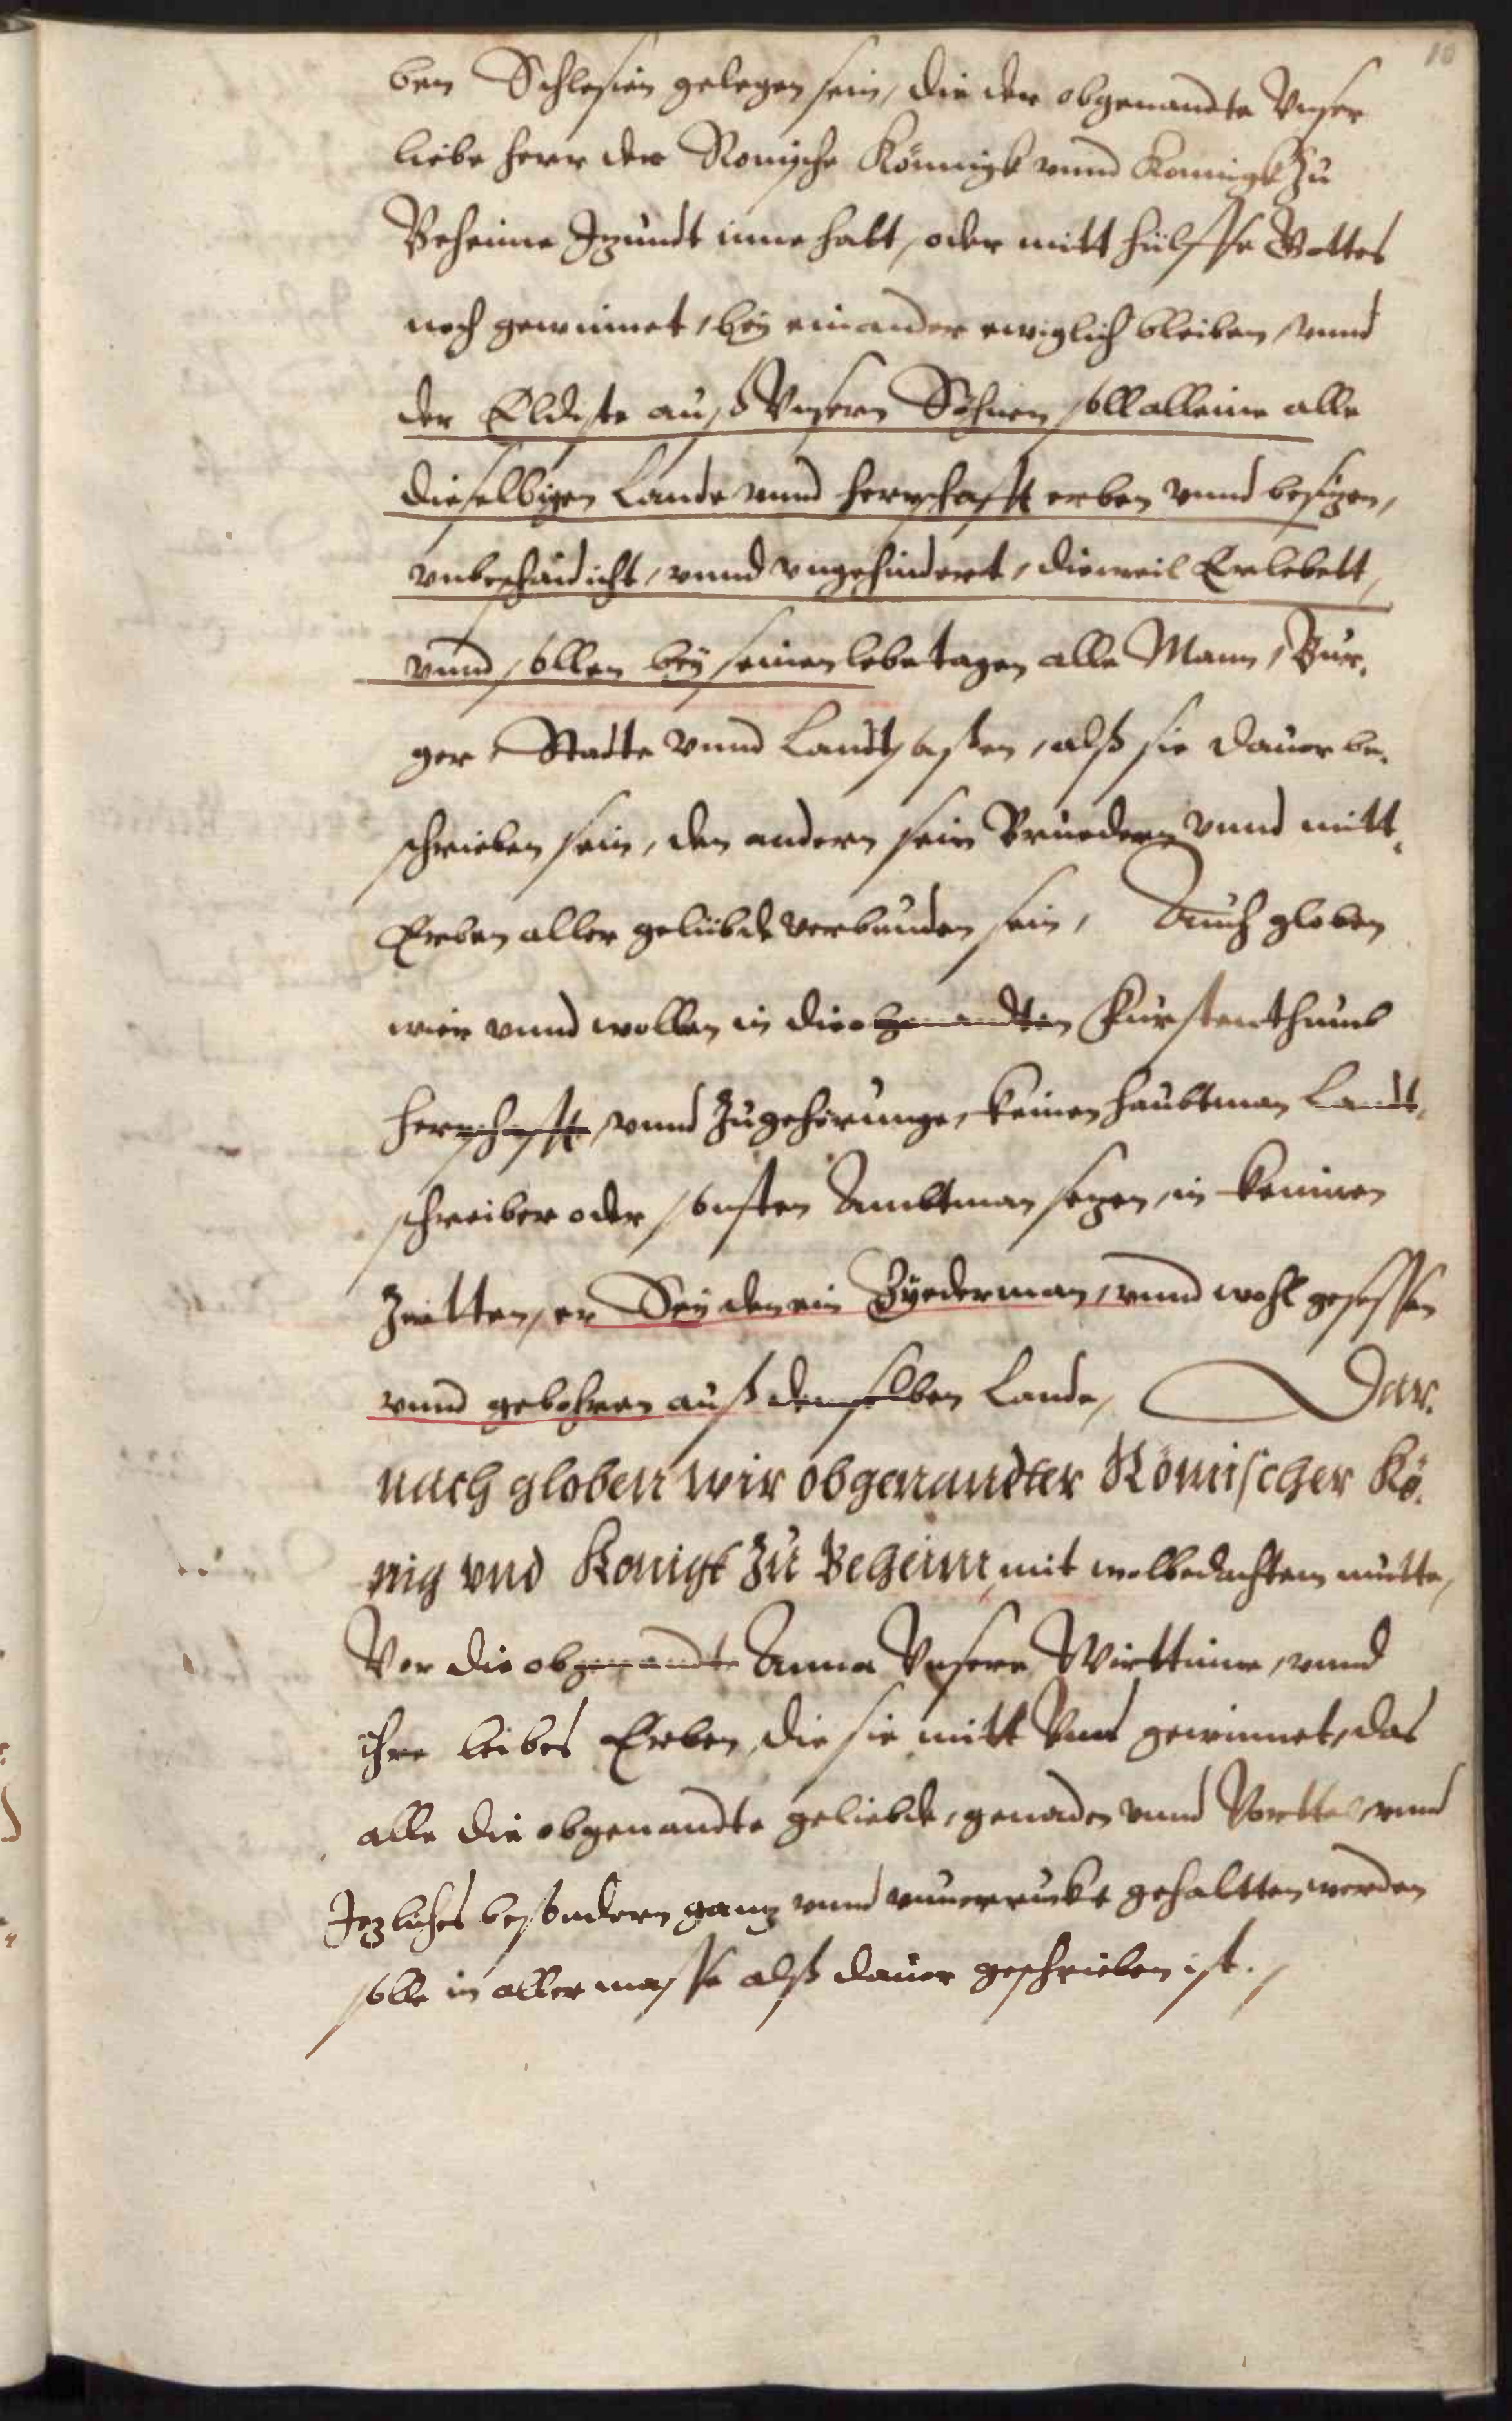 10
ben Schlesien gelegen sein, die der obgenandte Vnser
liebe herr der Romische Könnigk vnnd Konnigk Zu
Beheime Jzundt inne hatt, oder mitt hülffe Gottes
noch gewinnet, bey einander ewiglich bleiben, vnnd
der Eldiste auß Vnsern Söhnen soll alleine alle
dieselbigen Lande vnnd herrschafft erben vnnd besizen,
vnbeschaidicht, vnnd vngehindert, dieweil Er lebett,
vnnd sollen bey seinen lebetagen alle Mann, Bur,
ger, Stadte vnnd Landtsaßen, alß sie dauor be,
schrieben sein, den andern sein Bruedern vnnd mitt,
Erben aller gelübde verbunden sein, Auch globen
wier vnnd wollen in die obgenandten Fürstenthumb
herrschafft, vnnd Zugehörunge, keinen haubtman Landt,
schreiber oder sonsten Ambtman sezen, in keinen
Zeitten, er Sey den ein Byederman, vnnd wohl gesessen
vnnd gebohren auß demselben Lande, Dar,
nach globen wir obgenandter Römischer Kö,
nig vnd Konigk Zu Beheim, mit wolbedachtem mutte,
Vor die obgenandt Anna Vnsere Wirttinne, vnnd
ihre leibes Erben, die sie mitt Vnns gewinnet, das
alle die obgenandte geliebde, genaden vnnd Vorttel, vnnd
Jezliches besondern ganz vnnd vnuerruckt gehaltten werden
solle in aller masse alß dauor geschrieben ist.